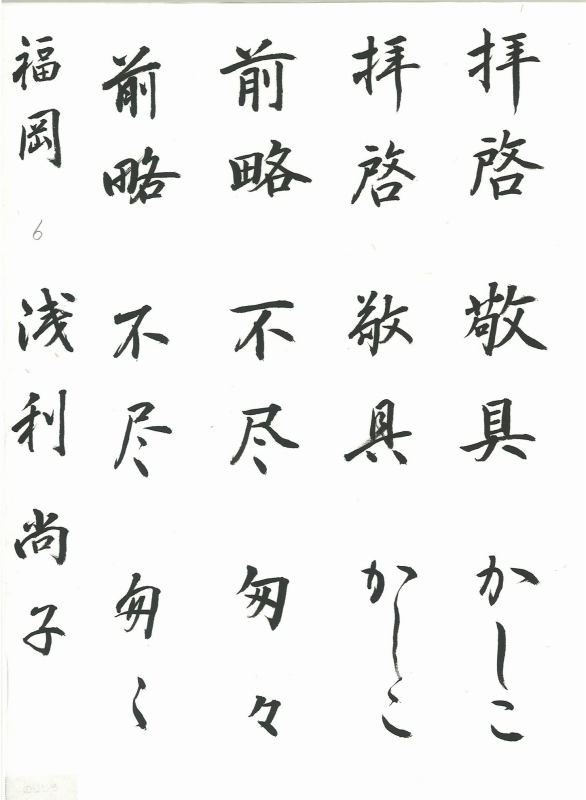 拝啓 敬具 かしこ
拝啓 敬具 かしこ
前略 不尽 匆々
前略 不尽 匆〻
福岡 6 浅利尚子